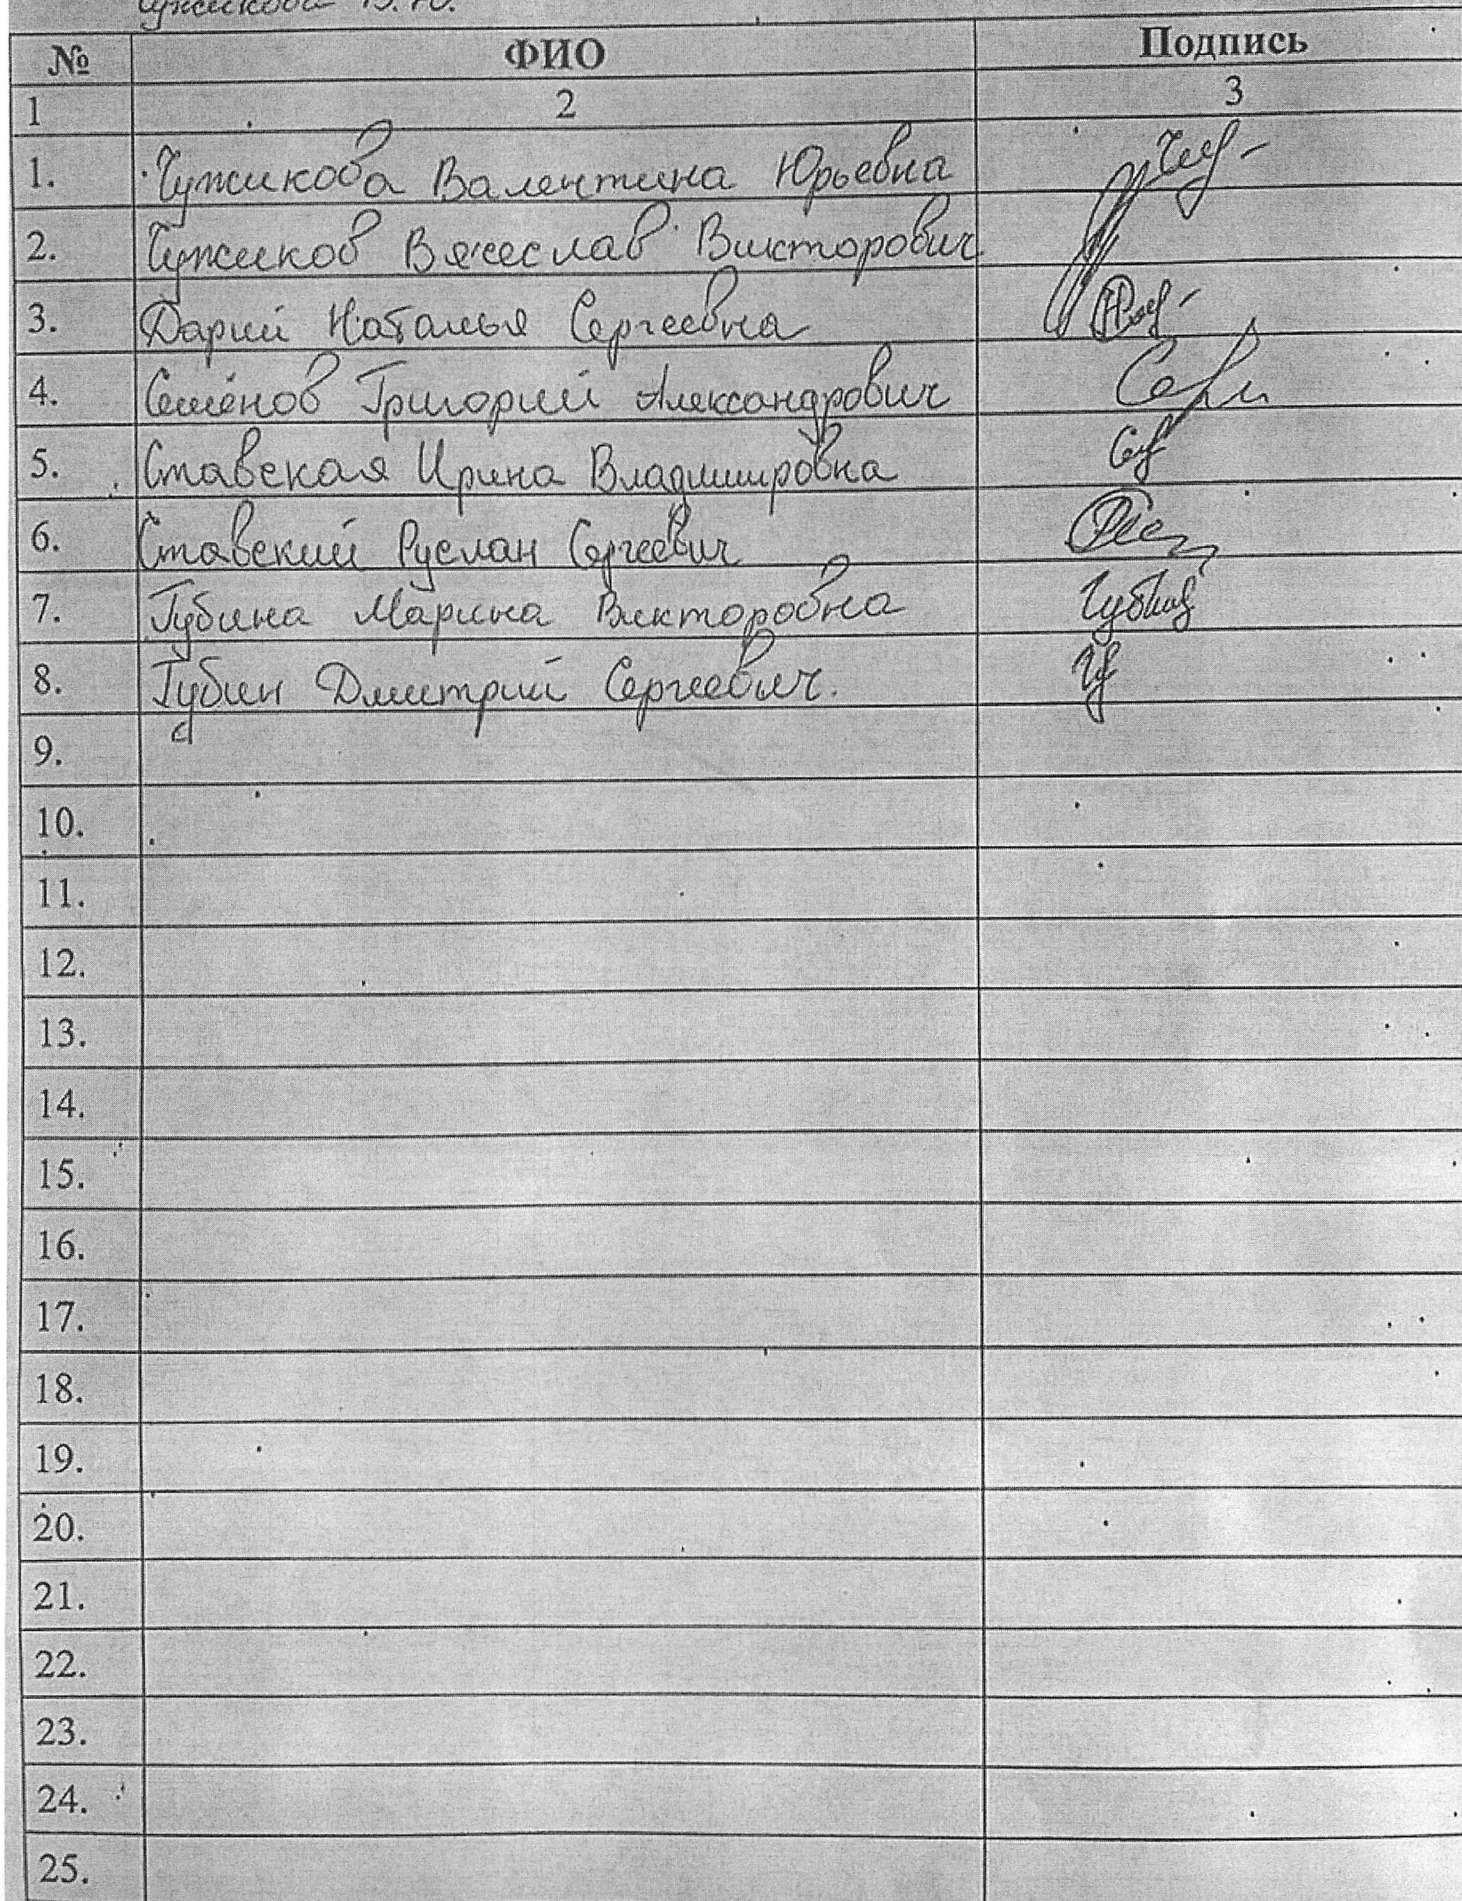 Чужикова В.Ю.
№ ФИО Подпись
1 2 3
1. Чужикова Валентина Юрьевна
2. Чужиков Вячеслав Викторович
3. Дарий Наталья Сергеевна
4. Семёнов Григорий Александрович
5. Ставская Ирина Владимировна
6. Ставский Руслан Сергеевич
7. Губина Марина Викторовна
8. Губин Дмитрий Сергеевич.
9.
10.
11.
12.
13.
14.
15.
16.
17.
18.
19.
20.
21.
22.
23.
24.
25.